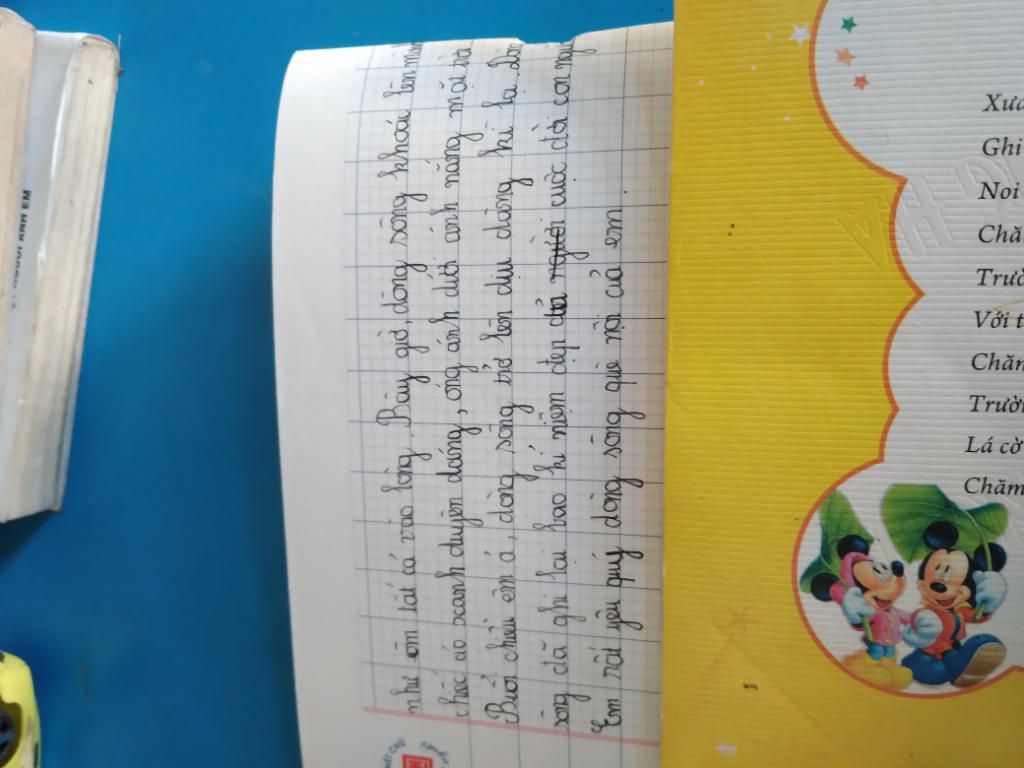 như ôm tất cả vào lòng. Bây giờ, dòng sông khoác lên mình
chiếc áo xanh duyên dáng, óng ánh dưới ánh nắng mặt trời
Buổi chiều êm ả, dòng sông trở lên dịu dàng kì lạ. Dòn
sông đã ghi lại bao kỉ niệm đẹp của người cuộc đời con người
Em rất yêu quý dòng sông quê nội của em.
Xưa
Ghi
Noi
Chă
Trườ
Với t
Chăm
Trườn
Lá cờ
Chăm
ANH EM